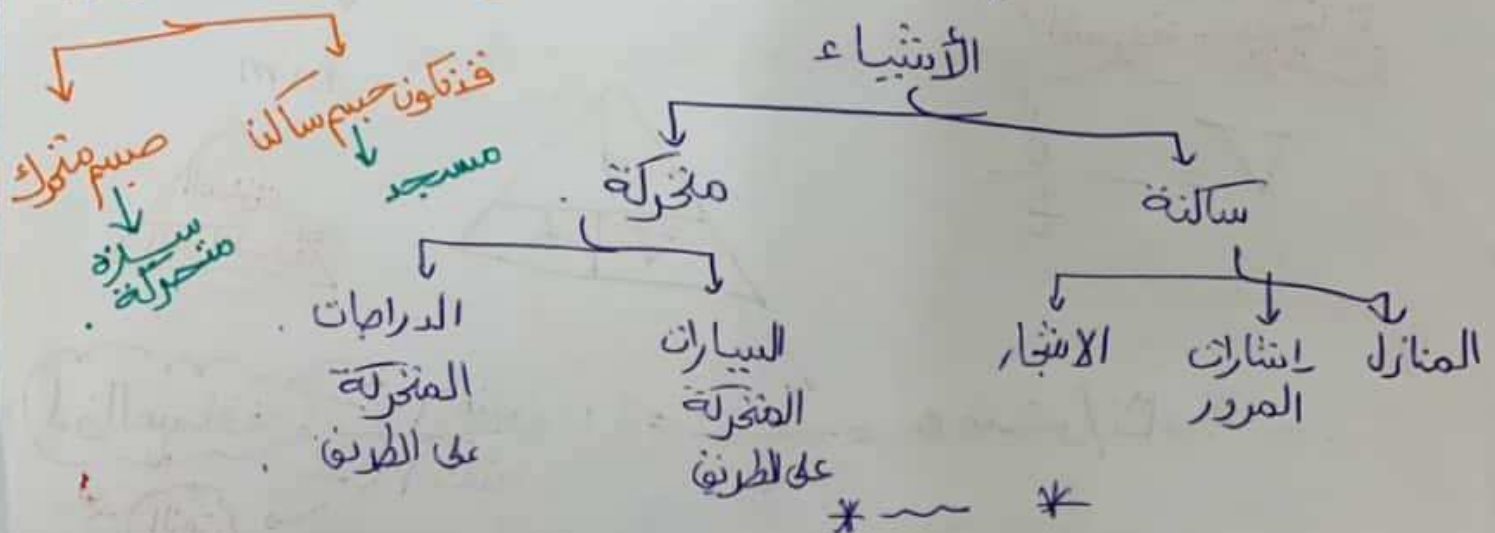 الأشياء
ساكنة
متحركة
المنازل
إشارات المرور
الاشجار
السيارات المتحركة على الطريق
الدراجات المتحركة على الطريق
قد تكون جسم ساكن
مسجد
جسم متحرك
سيارة متحركة